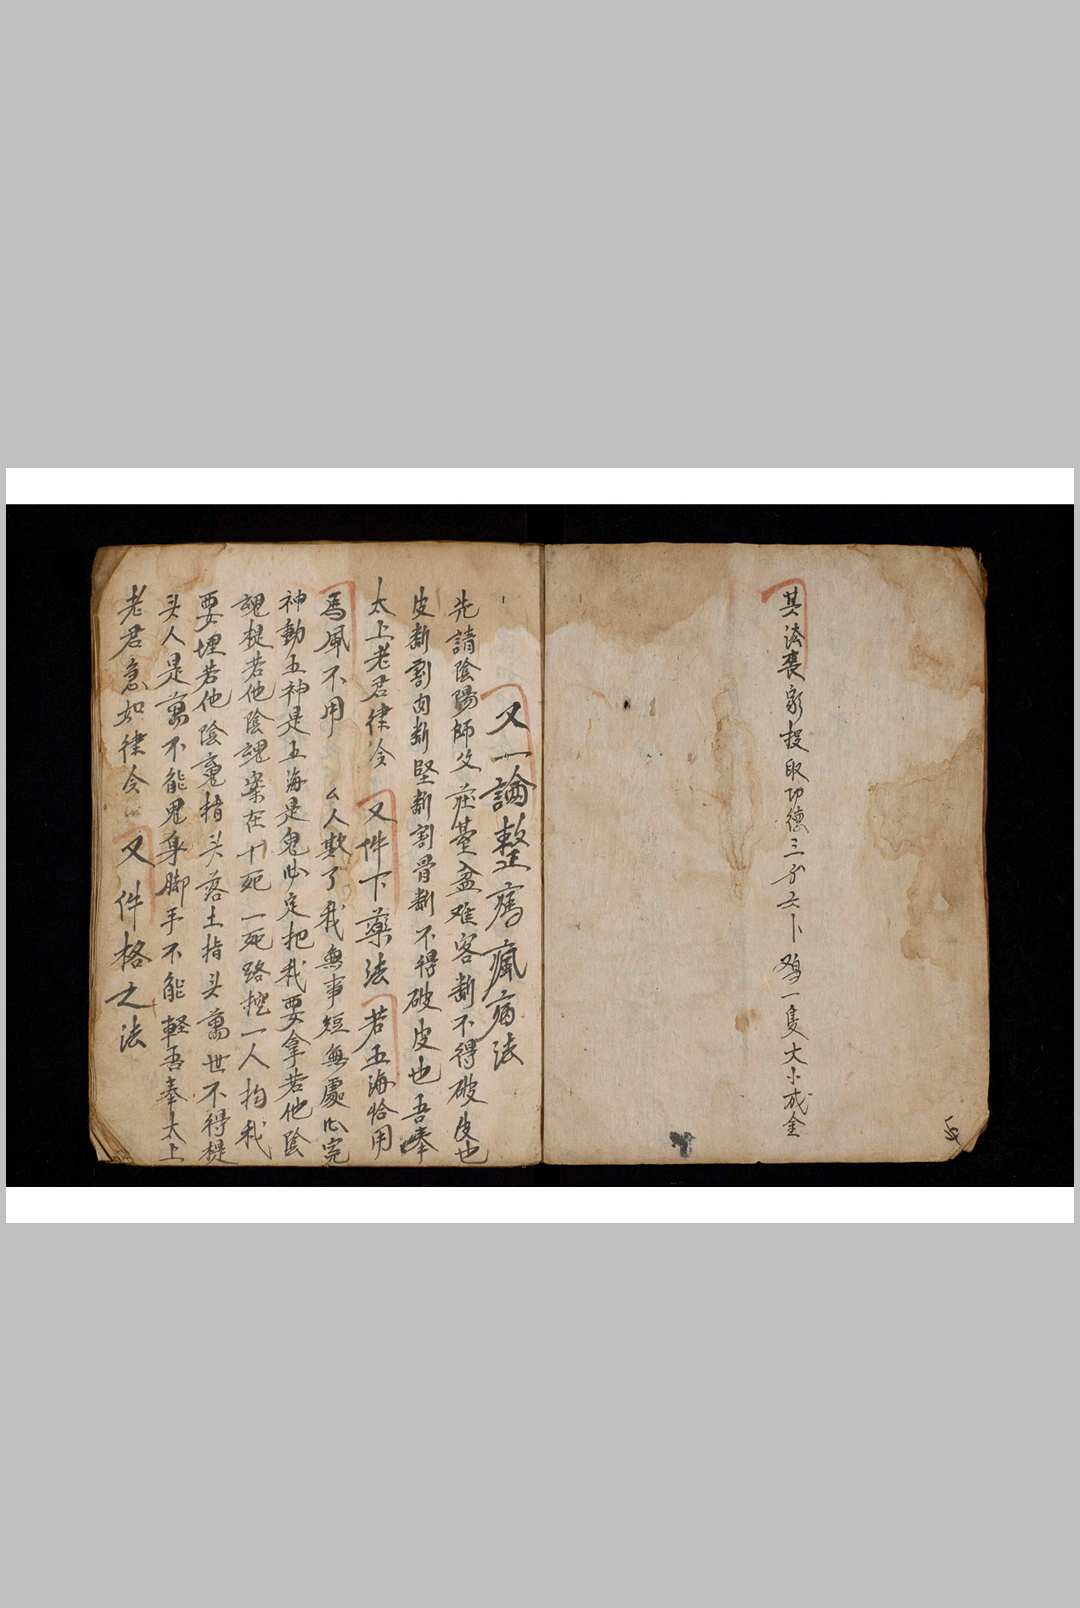 其法喪家投取功德三
一隻大小戒金
又一論整舊瘋病法
先請陰陽師父
难客斬不得破皮也
皮斬割肉斬堅斬割骨斬不得破皮也吾奉
太上老君律令 又件下藥法 若五海恰用
馬風不用 么人欺了我無事短無處
神動五神是五海是鬼必定把我要拿若他陰
魂提若他陰魂案在十死一死路挖一人拘我
要埋若他陰魂指头落土指头萬世不得提
头人是萬不能鬼身脚手不能輕吾奉太上
老君急如律令 又件格之法